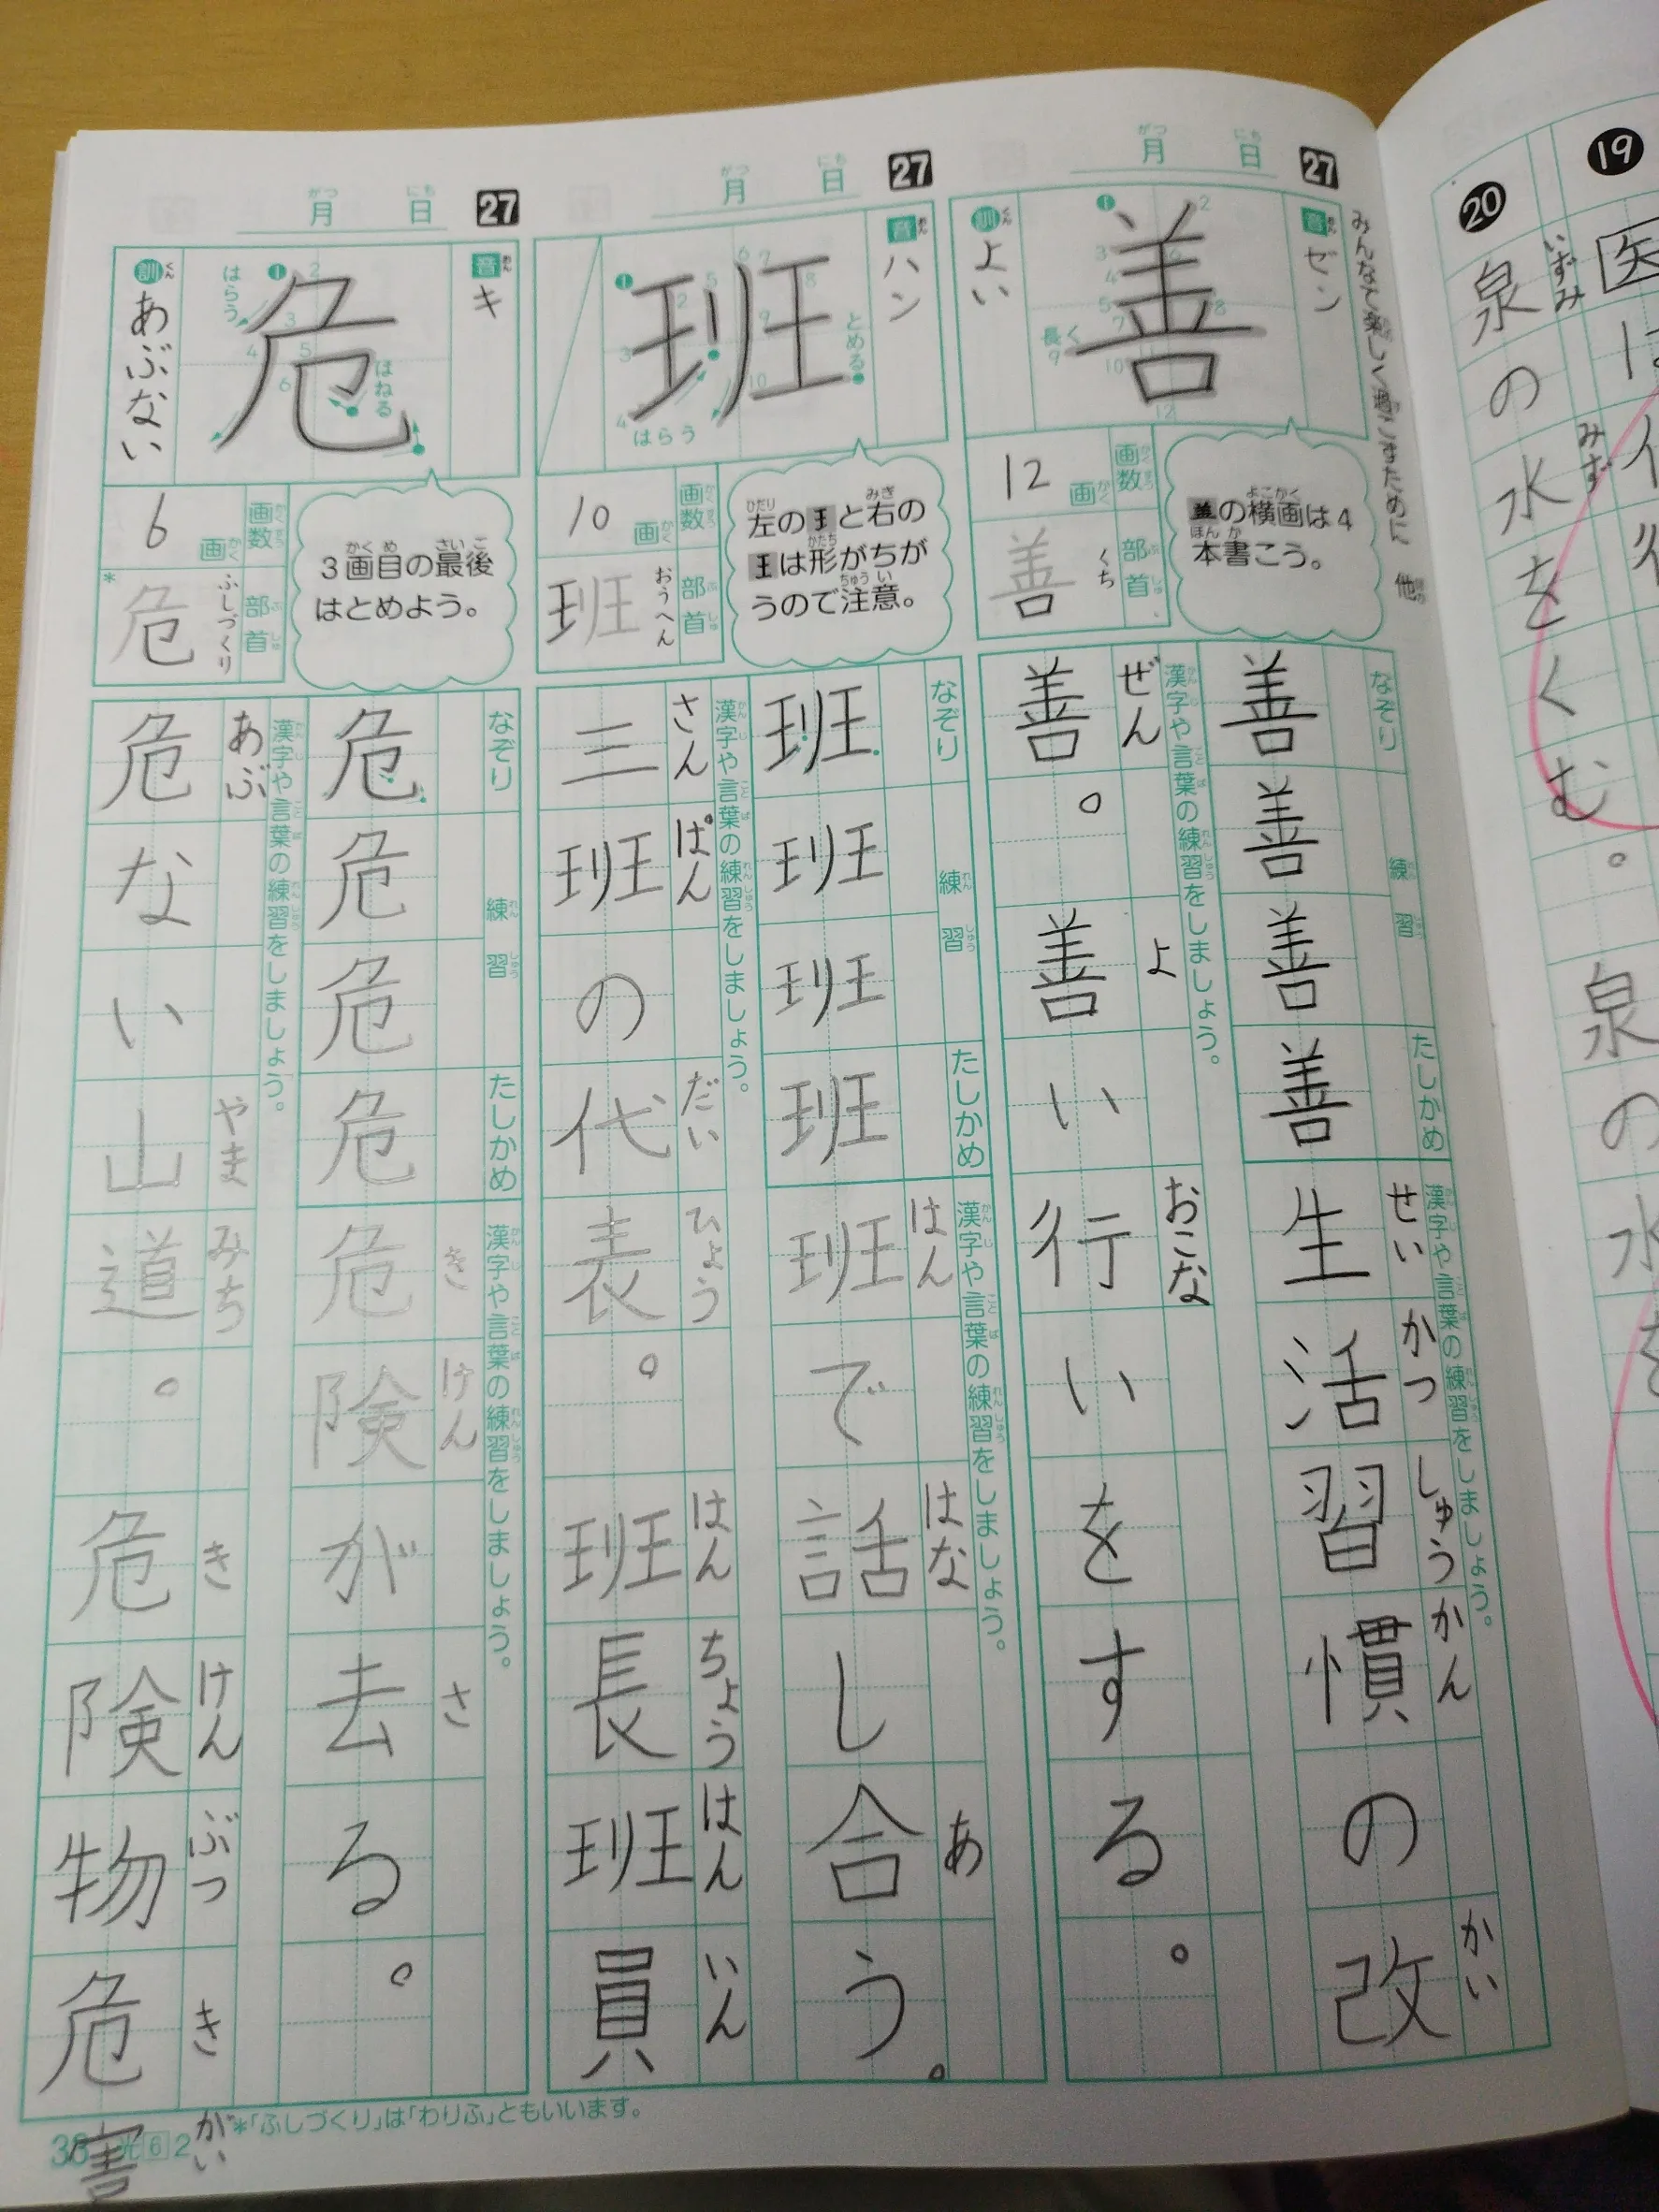 19
医
20
泉の水をくむ。
いずみ
みず
泉の水を
27
月 日
がつ にち
音 ゼン
訓 よい
長く
12画
画数
部首
善 くち
善の横画は4
本書こう。
みんなで楽しく過ごすために
他
なぞり
練習
たしかめ
善
善
善
善
漢字や言葉の練習をしましょう。
生活習慣の改
せい かつ しゅう かん かい
漢字や言葉の練習をしましょう。
善。善い行いをする。
ぜん よ おこな
27
月 日
がつ にち
音 ハン
班
とめる
はらう
10画
画数
部首
班 おうへん
左の王と右の
王は形がちが
うので注意。
なぞり
練習
たしかめ
班
班
班
班
漢字や言葉の練習をしましょう。
班で話し合う。
はん はな あ
漢字や言葉の練習をしましょう。
三班の代表。班長班員
さん ぱん だい ひょう はん ちょう はん いん
27
月 日
がつ にち
音 キ
危
訓 あぶない
はらう
はねる
6画
画数
部首
*危 ふしづくり
3画目の最後
はとめよう。
なぞり
練習
たしかめ
危
危
危
危
漢字や言葉の練習をしましょう。
危険が去る。
き けん さ
漢字や言葉の練習をしましょう。
危ない山道。危険物危害
あぶ やま みち き けん ぶつ き がい
*「ふしづくり」は「わりふ」ともいいます。
38 光6 2